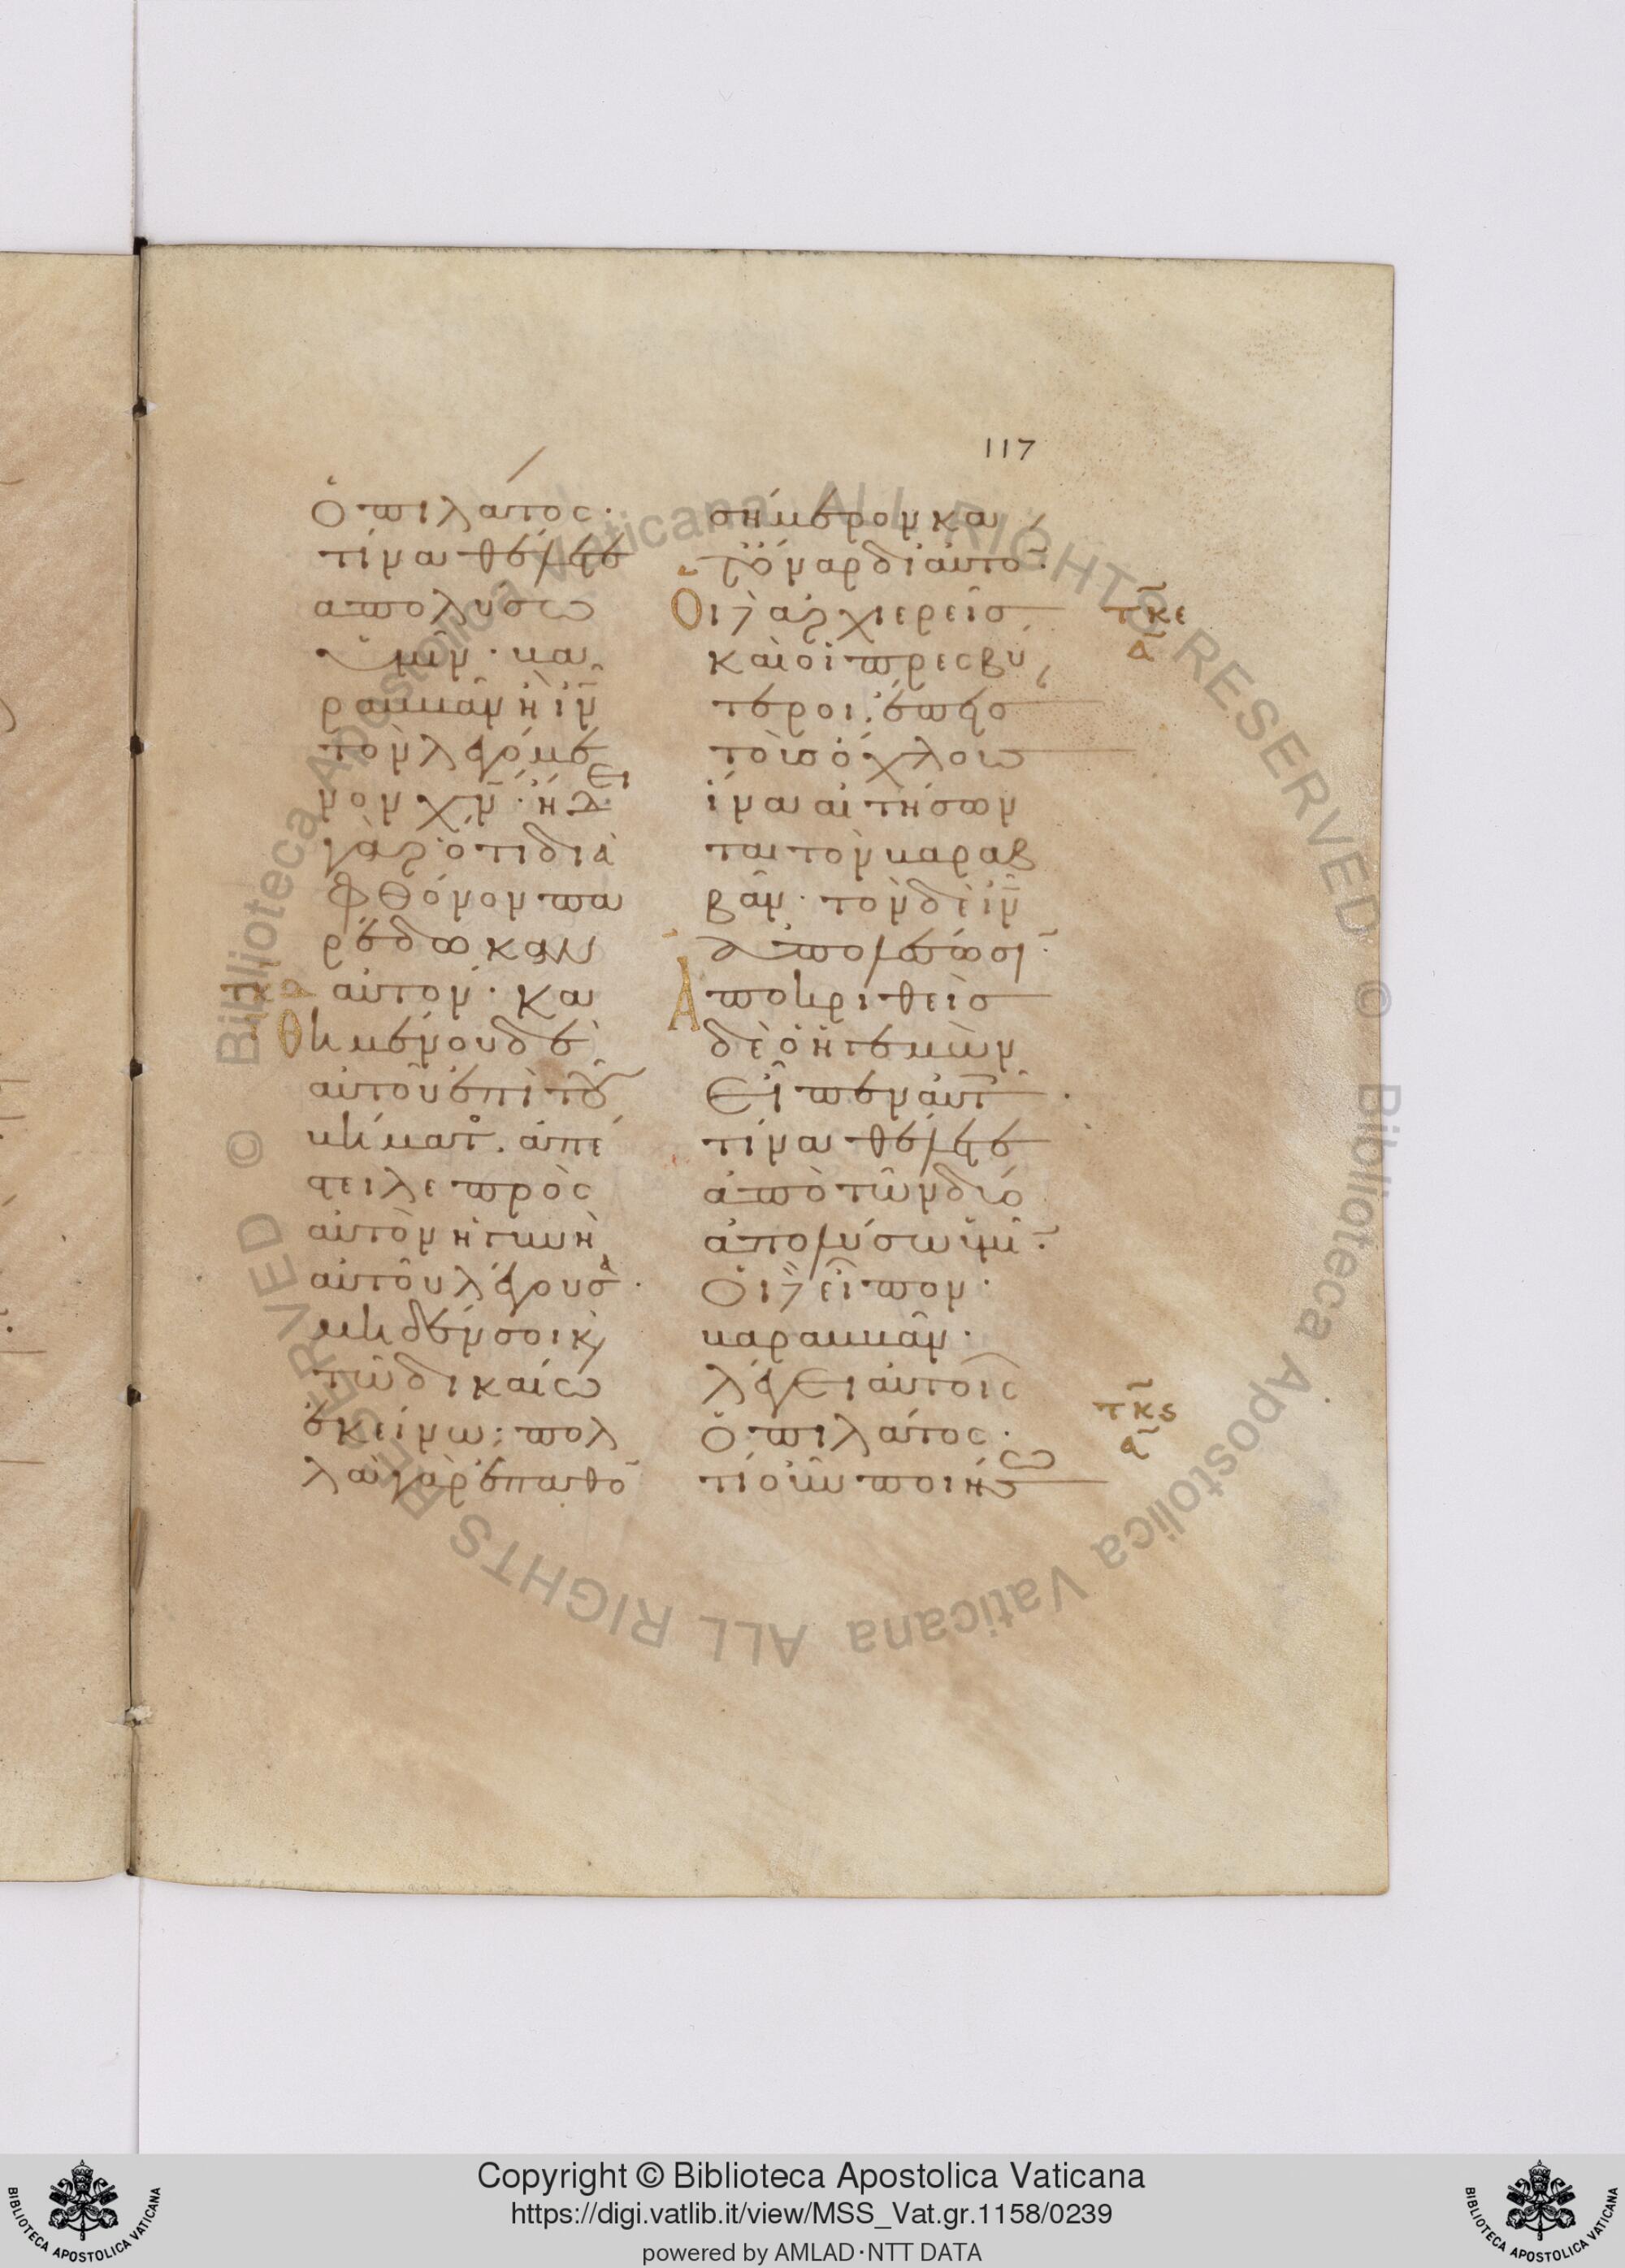 117
ὁ πιλατος·
τίνα θέλετε
απολυσω
ὑμῖν· βα
ραββᾶν ἢ ιν̅
τὸν λεγόμε
νον χν̅· ἤδει
γὰρ ὅτι διὰ
φθόνον πα
ρέδωκαν
αὐτον· Κα
θημένου δὲ
αὐτοῦ ἐπὶ τοῦ
βήματος· ἀπέ
στειλε πρὸς
αὐτὸν ἡ γυνὴ
αὐτοῦ λέγουσα·
μηδέν σοι κ
τῶ δικαίω
ἐκείνω· πολ
λὰ γὰρ ἔπαθον
σήμερον κα
τ ὄναρ δι αὐτόν·
Οἱ δὲ ἀρχιερεῖς
καὶ οἱ πρεσβύ
τεροι ἔπεισαν
τοὺς ὄχλους
ἵνα αἰτήσων
ται τὸν βαραβ
βᾶν· τὸν δὲ ιν̅
ἀπολέσωσιν·
Ἀποκριθεὶς
δὲ ὁ ἡγεμὼν
εἶπεν αὐτοῖς·
τίνα θέλετε
ἀπὸ τῶν δύο
ἀπολύσω ὑμῖν·
Οἱ δὲ εἶπον·
βαραββᾶν·
λέγει αὐτοῖς
ὁ πιλάτος·
τί οὖν ποιήσω
τκε
α
τκς
α
Copyright © Biblioteca Apostolica Vaticana
https://digi.vatlib.it/view/MSS_Vat.gr.1158/0239
powered by AMLAD·NTT DATA
BIBLIOTECA APOSTOLICA VATICANA
BIBLIOTECA APOSTOLICA VATICANA
© Biblioteca Apostolica Vaticana ALL RIGHTS RESERVED © Biblioteca Apostolica Vaticana ALL RIGHTS RESERVED